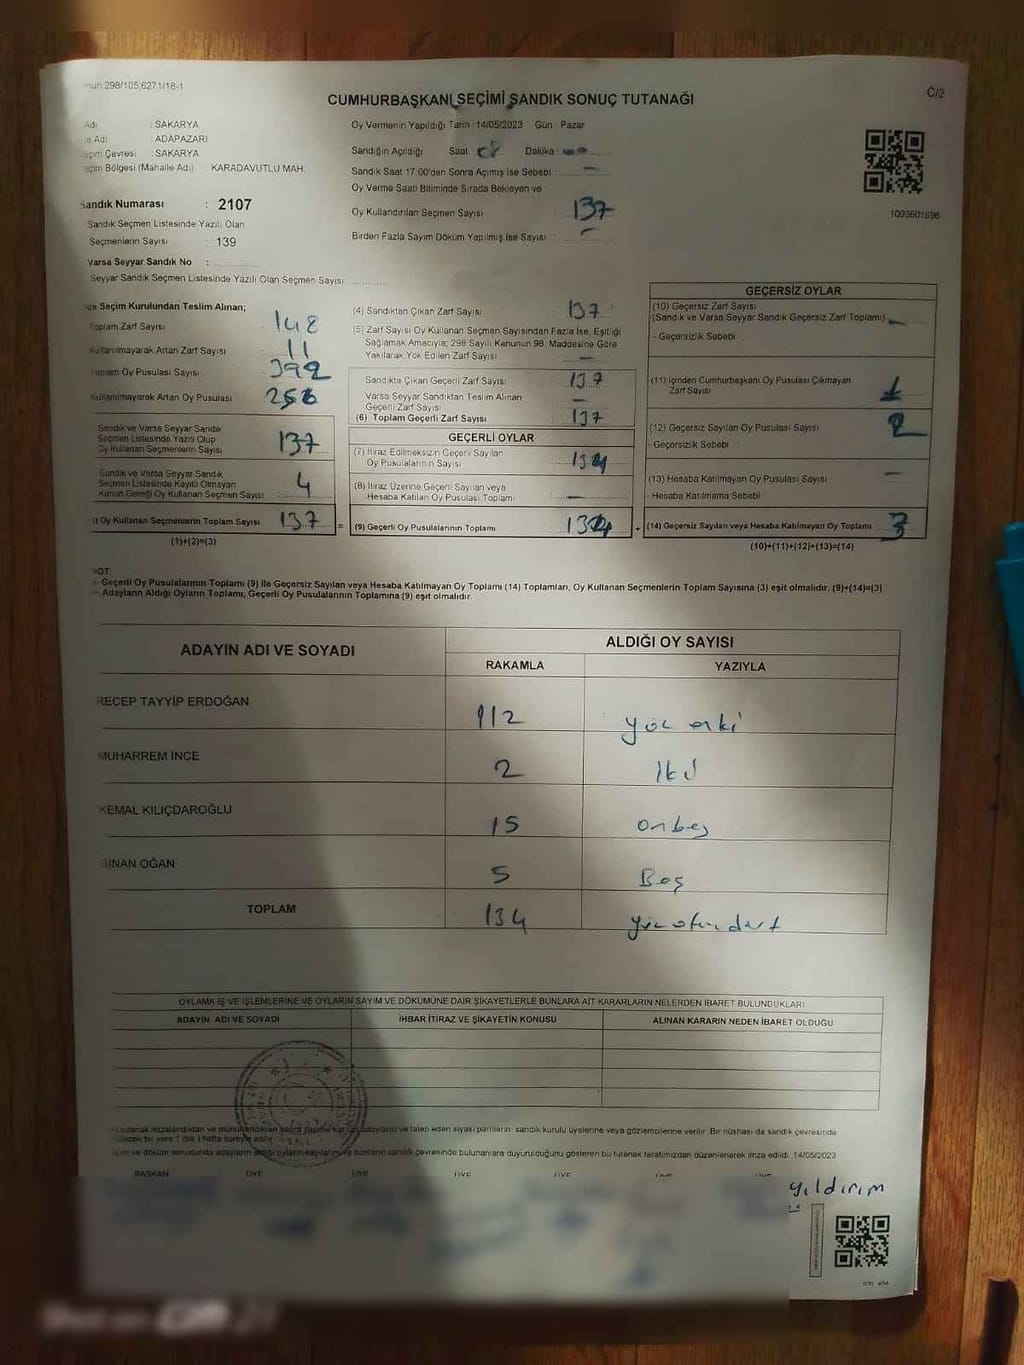 298/105,6271/18-1
C/2
CUMHURBAŞKANI SEÇİMİ SANDIK SONUÇ TUTANAĞI
Adı : SAKARYA
Adı : ADAPAZARI
Çevresi : SAKARYA
Bölgesi (Mahalle Adı) : KARADAVUTLU MAH.
Sandık Numarası : 2107
Sandık Seçmen Listesinde Yazılı Olan
Seçmenlerin Sayısı : 139
Varsa Seyyar Sandık No :
Seyyar Sandık Seçmen Listesinde Yazılı Olan Seçmen Sayısı:
Oy Vermenin Yapıldığı Tarih : 14/05/2023 Gün : Pazar
Sandığın Açıldığı Saat 08 Dakika :
Sandık Saat 17:00'den Sonra Açımış İse Sebebi : -
Oy Verme Saati Bitiminde Sırada Bekleyen ve
Oy Kullandırılan Seçmen Sayısı : 137
Birden Fazla Sayım Döküm Yapılmış İse Sayısı : -
1093601698
Seçim Kurulundan Teslim Alınan;
Toplam Zarf Sayısı 148
Kullanılmayarak Artan Zarf Sayısı 11
Toplam Oy Pusulası Sayısı 392
Kullanılmayarak Artan Oy Pusulası
Sandık ve Varsa Seyyar Sandık
Seçmen Listesinde Yazılı Olup
Oy Kullanan Seçmenlerin Sayısı 137
Sandık ve Varsa Seyyar Sandık
Seçmen Listesinde Kayıtlı Olmayan
Kanun Gereği Oy Kullanan Seçmen Sayısı 4
Oy Kullanan Seçmenlerin Toplam Sayısı 137 =
(1)+(2)=(3)
(4) Sandıktan Çıkan Zarf Sayısı 137
(5) Zarf Sayısı Oy Kullanan Seçmen Sayısından Fazla İse, Eşitliği
Sağlamak Amacıyla; 298 Sayılı Kanunun 98. Maddesine Göre
Yakılarak Yok Edilen Zarf Sayısı -
Sandıkta Çıkan Geçerli Zarf Sayısı 137
Varsa Seyyar Sandıktan Teslim Alınan
Geçerli Zarf Sayısı -
(6) Toplam Geçerli Zarf Sayısı 137
GEÇERLİ OYLAR
(7) İtiraz Edilmeksizin Geçerli Sayılan
Oy Pusulalarının Sayısı 134
(8) İtiraz Üzerine Geçerli Sayılan veya
Hesaba Katılan Oy Pusulası Toplamı -
(9) Geçerli Oy Pusulalarının Toplamı 134 +
GEÇERSİZ OYLAR
(10) Geçersiz Zarf Sayısı
(Sandık ve Varsa Seyyar Sandık Geçersiz Zarf Toplamı) -
- Geçersizlik Sebebi :
(11) İçinden Cumhurbaşkanı Oy Pusulası Çıkmayan
Zarf Sayısı 1
(12) Geçersiz Sayılan Oy Pusulası Sayısı 2
- Geçersizlik Sebebi :
(13) Hesaba Katılmayan Oy Pusulası Sayısı -
- Hesaba Katılmama Sebebi
(14) Geçersiz Sayılan veya Hesaba Katılmayan Oy Toplamı 3
(10)+(11)+(12)+(13)=(14)
NOT
- Geçerli Oy Pusulalarının Toplamı (9) ile Geçersiz Sayılan veya Hesaba Katılmayan Oy Toplamı (14) Toplamları, Oy Kullanan Seçmenlerin Toplam Sayısına (3) eşit olmalıdır. (9)+(14)=(3)
- Adayların Aldığı Oyların Toplamı, Geçerli Oy Pusulalarının Toplamına (9) eşit olmalıdır.
ADAYIN ADI VE SOYADI ALDIĞI OY SAYISI
RAKAMLA YAZIYLA
RECEP TAYYİP ERDOĞAN 112
MUHARREM İNCE 2 iki
KEMAL KILIÇDAROĞLU 15 onbeş
SİNAN OĞAN 5 Beş
TOPLAM 134
OYLAMA İŞ VE İŞLEMLERİNE VE OYLARIN SAYIM VE DÖKÜMÜNE DAİR ŞİKAYETLERLE BUNLARA AİT KARARLARIN NELERDEN İBARET BULUNDUKLARI
ADAYIN ADI VE SOYADI İHBAR İTİRAZ VE ŞİKAYETİN KONUSU ALINAN KARARIN NEDEN İBARET OLDUĞU
tutanak imzalandıktan ve mühürlendikten sonra adayların ve talep eden siyasi partilerin sandık kurulu üyelerine veya gözlemcilerine verilir. Bir nüshası da sandık çevresinde
1 hafta süreyle asılır.
ve döküm sonucunda adayların aldığı oyların sayıları ve bunların sandık çevresinde bulunanlara duyurulduğunu gösteren bu tutanak tarafımızdan düzenlenerek imza edildi. 14/05/2023
BAŞKAN ÜYE ÜYE ÜYE ÜYE
yıldırım